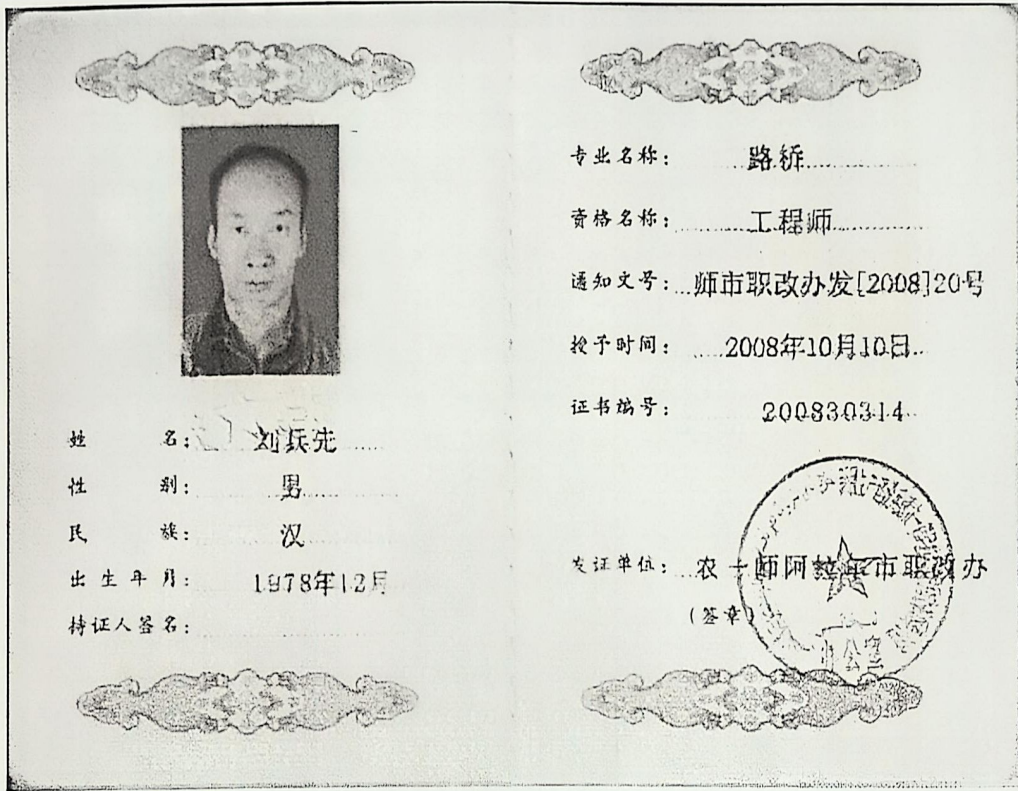 姓 名：刘兵先
性 别：男
民 族：汉
出生年月：1978年12月
持证人签名：
专业名称：路桥
资格名称：工程师
通知文号：师市职改办发[2008]20号
授予时间：2008年10月10日
证书编号：200830314
发证单位：农一师阿拉尔市职改办
（签章）